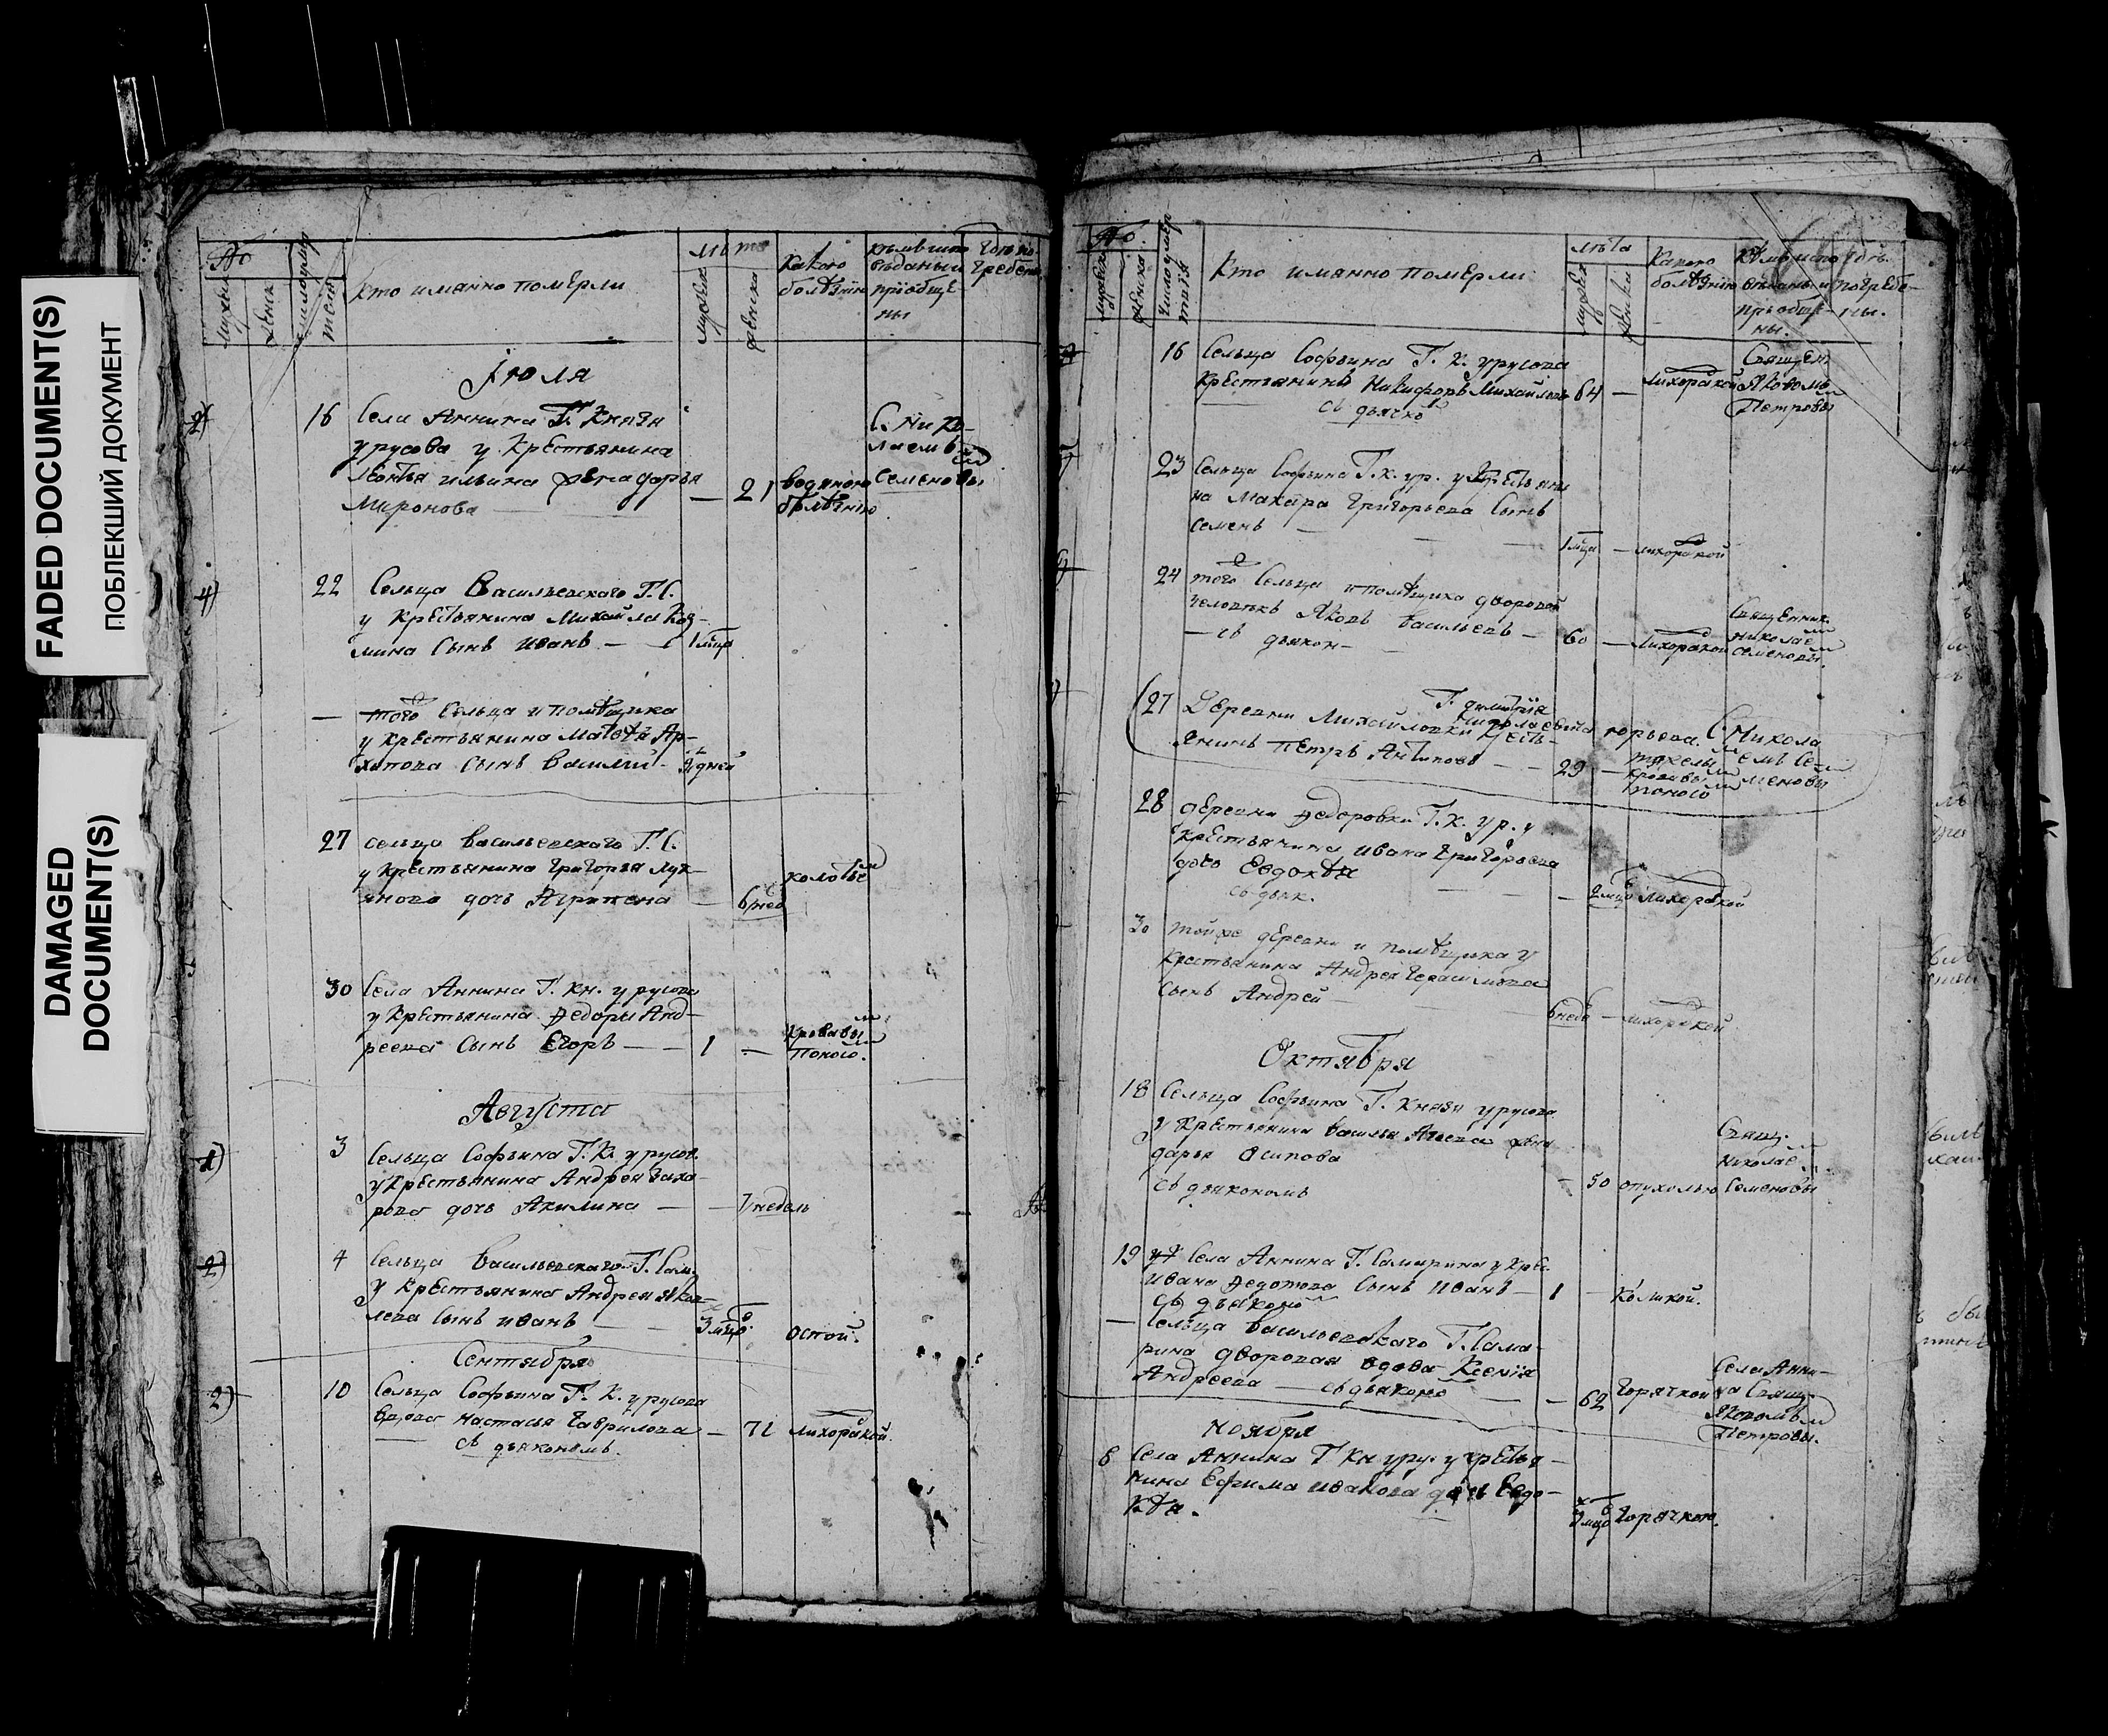 FADED DOCUMENT(S)
ПОБЛЕКШИЙ ДОКУМЕНТ
DAMAGED
DOCUMENT(S)
№
мужеск
женск
число умер
кто имянно померли
лѣта
мужеск
женска
какого
болѣзнію
пріобще-
ны
Іюля
2)
16
Села Аннина Г. Князя
урусова у крестьянина
Леонтья ильина жена
Миронова
— 21
водяною
болѣзнію
С. Нико-
лаемъ
Семеновы
4)
22
Сельца Васильевскаго Г. С.
у крестьянина Михайла Коз-
мина сынъ иванъ —
—
того сельца и помѣщика
у крестьянина Матвѣя Ар-
хипова сынъ василий —
дней
27
сельца васильевскаго Г. С.
у крестьянина григорья лук-
янова дочь Агрипена
— 6 нед
колотье
30
Села Аннина Г. кн. урусова
у крестьянина Федора Анд-
реева сынъ Егоръ — —
1 —
кровавы
поносо.
Августа
1)
3
Сельца Софьина Г. К. урусов.
у крестьянина Андрея заха-
рова дочь Акилина —
— 7 недель
2)
4
Сельца васильевскаго Г. Сам.
у крестьянина Андрея яков-
лева сынъ иванъ — —
3 мцо
оспой.
Сентября
2)
10
Сельца Софьина Г. К. урусова
вдова настасья гаврилова
— 71 лихорадкой.
съ дьякономъ.
№
мужеска
женска
число умер
Кто имянно померли
лѣта
мужеск
женска
Какого
болѣзнію
пріобще-
ны.
и погребе-
ны.
16
Сельца Софьина Г. К. урусова
крестьянинъ Никифоръ Михайловъ
64 — лихорадкой
съ дьячко
Священ
Яковомъ
Петровы
23
Сельца Софьина Г. к. ур. у крестьяни
на Макара григорьева сынъ
семенъ —
1 мца — лихорадкой
24
того сельца и помѣщика дворовой
человѣкъ Яковъ васильевъ —
60 — лихорадкой
— съ дьякон —
Священник
николае
семеновы.
27
Деревни Михайловки Г. димитрія
николаевича юрьева. крестья-
янинъ Петръ Антиповъ — —
29 — тяжелы
кровавы
поносо
С Никола
емъ Се-
меновы
28
деревни Федоровки Г. К. ур. у
крестьянина ивана григорьева
дочь Евдокѣя
съ дьяк.
— 2 мцо лихорадкой
30
тойже деревни и помѣщика у
крестьянина Андрея герасимова
сынъ Андрей —
6 неде — лихорадкой
Октября
18
Сельца Софьина Г. Князя урусова
у крестьянина василья жена
дарья осипова
— 50 опухолью
съ дьякономъ
Свящ.
Николае
Семеновы
19
Села Аннина Г. Самарина у крес.
ивана Федотова сынъ иванъ —
1 — коликой.
съ дьяконо
— Сельца васильевскаго Г. Сама-
рина дворовая вдова Ксенія
Андреева — съ дьяконо
— 62 горячкой
Села Анни-
на Свящ.
Яковомъ
Петровы.
ноября
8
Села Аннина Г Кн уру. у крестья-
нина Ефима ивакова дочь Евдо-
кѣя.
мцо горячкою.